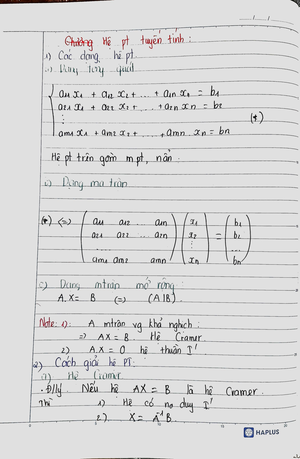 Chương Hệ pt tuyến tính:
1) Các dạng hệ pt
a) Dạng tổng quát
a11 x1 + a12 x2 + ... + a1n xn = b1
a21 x1 + a22 x2 + ... + a2n xn = b2
⋮ (*)
am1 x1 + am2 x2 + ... + amn xn = bn
Hệ pt trên gồm m pt, n ẩn
b) Dạng ma trận
(*) <=> ( a11 a12 ... a1n ) ( x1 ) = ( b1 )
a21 a22 ... a2n x2 b2
... ⋮ ...
am1 am2 amn xn bn
c) Dạng mtrận mở rộng:
A.X = B <=> (A|B)
Note: 1): A mtrận vg khả nghịch:
=> AX = B Hệ Cramer.
2) AX = 0 hệ thuần I'
2) Cách giải hệ PT:
1) Hệ Cramer
Đlý Nếu hệ AX = B là hệ Cramer.
Thì 1) Hệ có no duy I'
2) X = A⁻¹B
HAPLUS